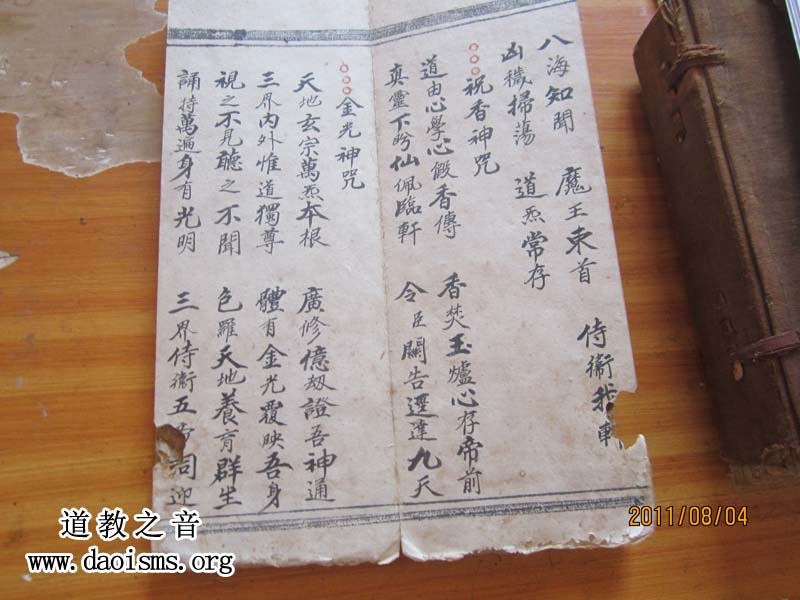 八海知聞 魔王束首 侍衛我軒
凶穢掃蕩 道炁常存
祝香神咒
道由心學心假香傳 香焚玉爐心存帝前
真靈下盻仙佩臨軒 令臣關告逕達九天
金光神咒
天地玄宗萬炁本根 廣修億劫證吾神通
三界內外惟道獨尊 體有金光覆映吾身
視之不見聽之不聞 色羅天地養育群生
誦持萬遍身有光明 三界侍衛五 迎
2011/08/04
道教之音
www.daoisms.org